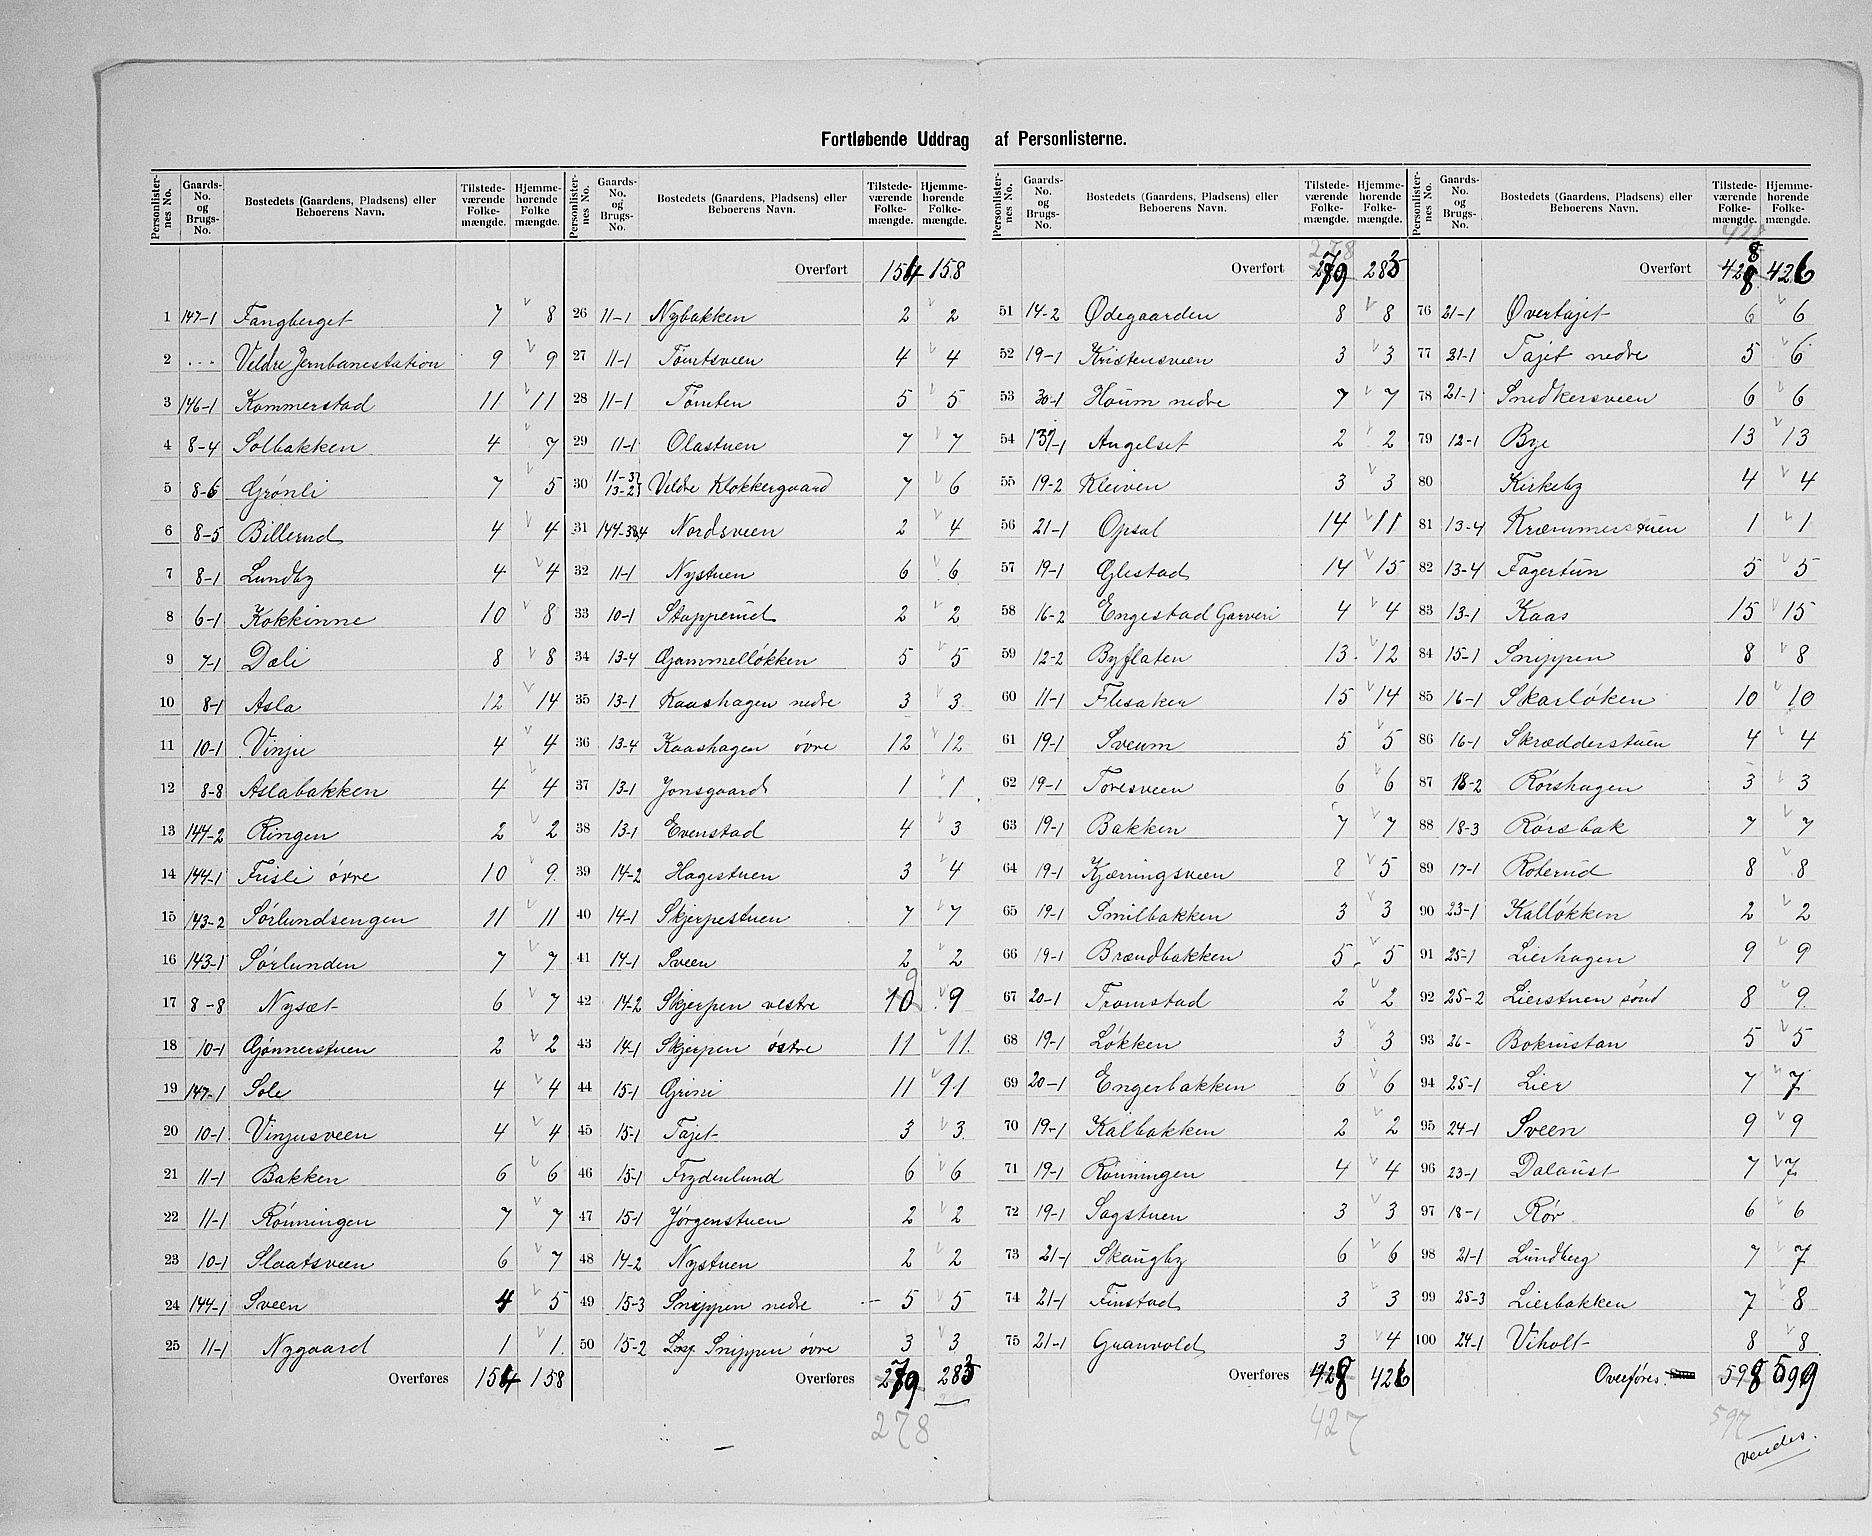 Fortløbende Uddrag af Personlisterne.
Personlister-nes No. | Gaards-No. og Brugs-No. | Bostedets (Gaardens, Pladsens) eller Beboerens Navn. | Tilstede-værende Folke-mængde. | Hjemme-hørende Folke mængde.
1 147-1 Fangberget 7 8
2 . . . Veldre Jernbanestation 9 9
3 146-1 Kommerstad 11 11
4 8-4 Solbakken 4 7
5 8-6 Grønli 7 5
6 8-5 Billerud 4 4
7 8-1 Lundby 4 4
8 6-1 Kokkinne 10 8
9 7-1 Dæli 8 8
10 8-1 Asla 12 14
11 10-1 Vinju 4 4
12 8-8 Aslabakken 4 4
13 144-2 Ringen 2 2
14 144-1 Frisli øvre 10 9
15 143-2 Sørlundsengen 11 11
16 143-1 Sørlunden 7 7
17 8-8 Nysæt 6 7
18 10-1 Gjønnerstuen 2 2
19 147-1 Sole 4 4
20 10-1 Vinjusveen 4 4
21 11-1 Bakken 6 6
22 11-1 Rønningen 7 7
23 10-1 Slaatsveen 6 7
24 144-1 Sveen 4 5
25 11-1 Nygaard 1 1
Overføres 154 158
Personlister-nes No. | Gaards-No. og Brugs-No. | Bostedets (Gaardens, Pladsens) eller Beboerens Navn. | Tilstede-værende Folke-mængde. | Hjemme-hørende Folke-mængde.
Overført 154 158
26 11-1 Nybakken 2 2
27 11-1 Tomtsveen 4 4
28 11-1 Tomten 5 5
29 11-1 Olastuen 7 7
30 11-3 13-2 Veldre Klokkergaard 7 6
31 Nordsveen 2 4
32 11-1 Nystuen 6 6
33 10-1 Stopperud 2 2
34 13-4 Gammelløkken 5 5
35 13-1 Kaashagen nedre 3 3
36 13-4 Kaashagen øvre 12 12
37 13-1 Jonsgaard 1 1
38 13-1 Evenstad 4 3
39 14-2 Hagestuen 3 4
40 14-1 Skjerpestuen 7 7
41 14-1 Sveen 2 2
42 14-2 Skjerpen vestre 10 9 9
43 14-1 Skjerpen østre 11 11
44 15-1 Grini 11 91
45 15-1 Tajet 3 3
46 15-1 Frydenlund 6 6
47 15-1 Jørgenstuen 2 2
48 14-2 Nystuen 2 2
49 15-3 Snippen nedre 5 5
50 15-2 Snippen øvre 3 3
Overføres 279 283
278
Personlister-nes No. | Gaards-No. og Brugs-No. | Bostedets (Gaardens, Pladsens) eller Beboerens Navn. | Tilstede-værende Folke-mængde. | Hjemme-hørende Folke-mængde.
278
Overført 279 283
51 14-2 Ødegaarden 8 8
52 19-1 Kristensveen 3 3
53 30-1 Houm nedre 7 7
54 137-1 Angelset 2 2
55 19-2 Kleiven 3 3
56 21-1 Opsal 14 11
57 19-1 Glestad 14 15
58 16-2 Engestad Garveri 4 4
59 12-2 Byflaten 13 12
60 11-1 Flisaker 15 14
61 19-1 Sveum 5 5
62 19-1 Toresveen 6 6
63 19-1 Bakken 7 7
64 19-1 Kjærringsveen 8 5
65 19-1 Smilbakken 3 3
66 19-1 Brændbakken 5 5
67 20-1 Tromstad 2 2
68 19-1 Løkken 3 3
69 20-1 Engerbakken 6 6
70 19-1 Kalbakken 2 2
71 19-1 Rønningen 4 4
72 19-1 Sagstuen 3 3
73 21-1 Skaugby 6 6
74 21-1 Finstad 3 3
75 21-1 Granvold 3 4
Overføres 428 426
427
Personlister-nes No. | Gaards-No. og Brugs-No. | Bostedets (Gaardens, Pladsens) eller Beboerens Navn. | Tilstede-værende Folke-mængde. | Hjemme-hørende Folke-mængde.
428
8
Overført 428 426
76 21-1 Øvertajet 6 6
77 21-1 Tajet nedre 5 6
78 21-1 Snedkersveen 6 6
79 12-1 Bye 13 13
80 Kirkeby 4 4
81 13-4 Kræmmerstuen 1 1
82 13-4 Fagertun 5 5
83 13-1 Kaas 15 15
84 15-1 Snippen 8 8
85 16-1 Skarløken 10 10
86 16-1 Skrædderstuen 4 4
87 18-2 Rørshagen 3 3
88 18-3 Rørsbak 7 7
89 17-1 Roterud 8 8
90 23-1 Kalløkken 2 2
91 25-1 Lierhagen 9 9
92 25-2 Lierstuen sønd 8 9
93 26- Bokvistan 5 5
94 25-1 Lier 7 7
95 24-1 Sveen 9 9
96 23-1 Dalaust 7 7
97 18-1 Rør 6 6
98 21-1 Lundberg 7 7
99 25-3 Lierbakken 7 8
100 24-1 Viholt 8 8
Overføres 598 599
597
vendes.